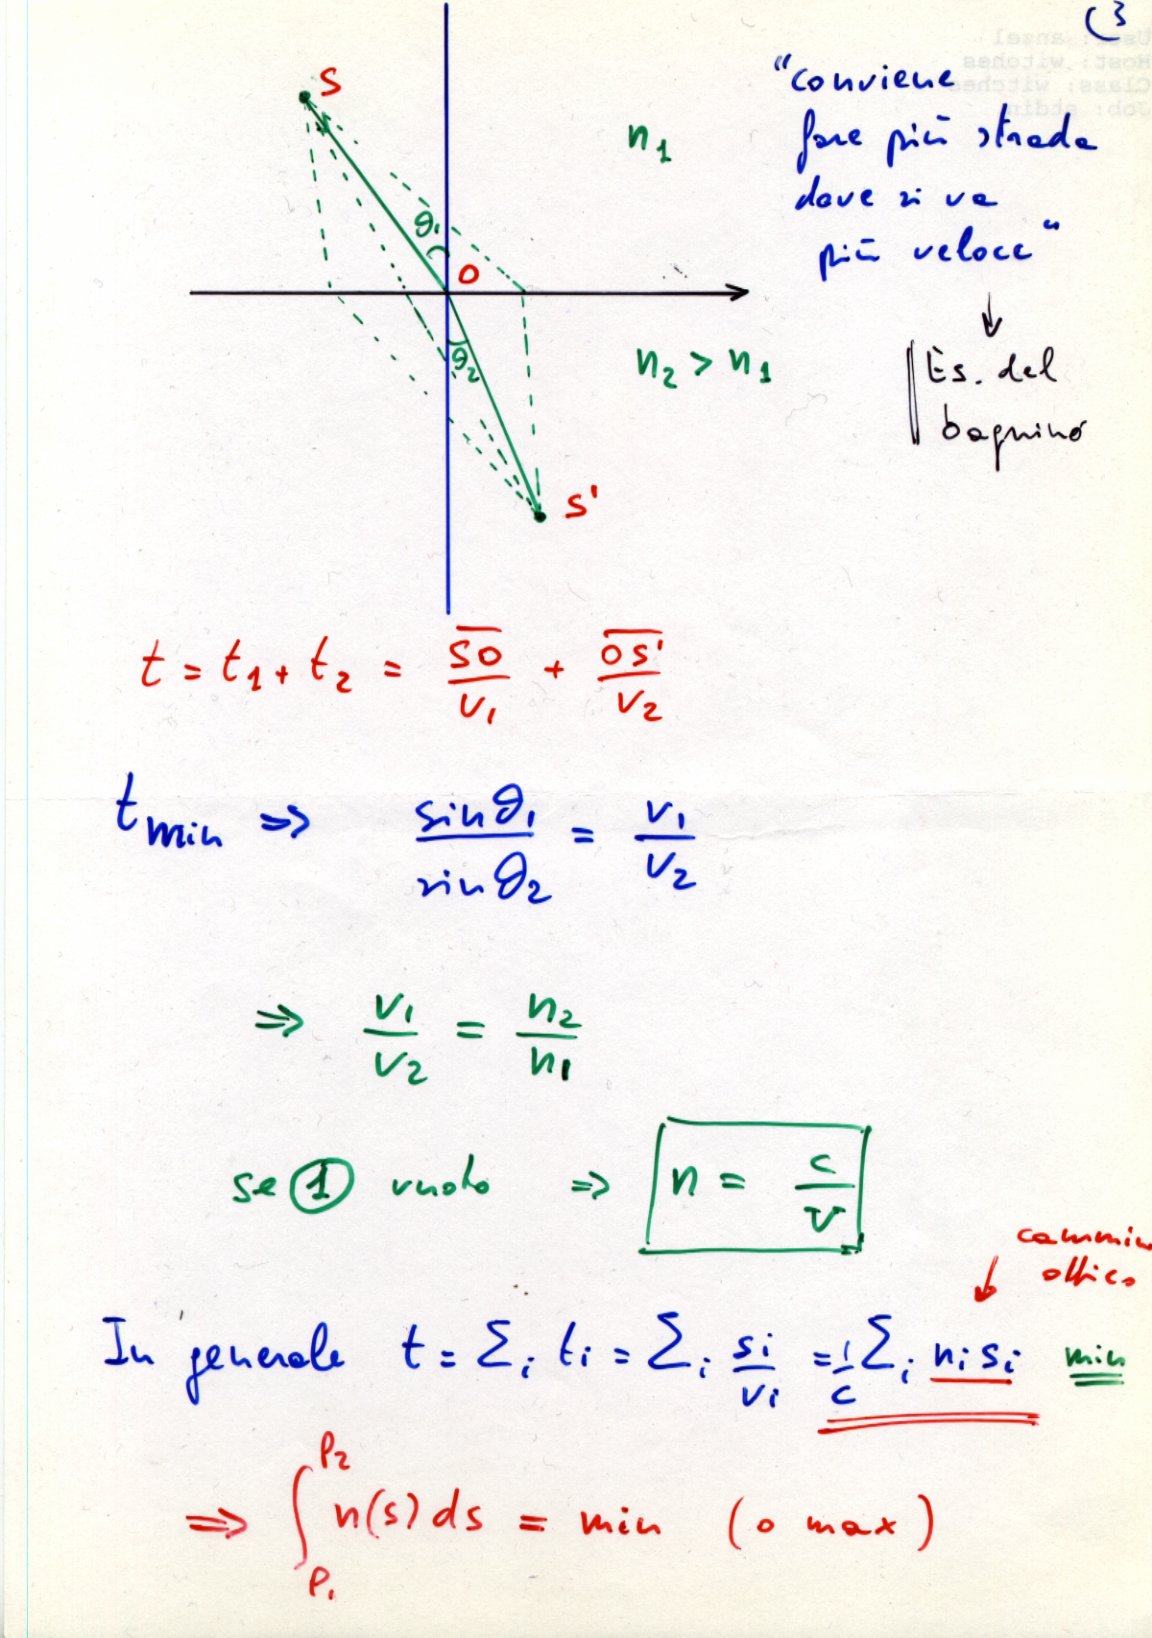 (3
User: ansel
Host: witches
Class: witches
Job: stdin
S
n₁
"conviene
fare più strada
dove si va
più veloce"
θ₁
O
θ₂
n₂ > n₁
Es. del
bagnino
S'
t = t₁ + t₂ = SO/v₁ + OS'/v₂
t min ⇒ sinθ₁/sinθ₂ = v₁/v₂
⇒ v₁/v₂ = n₂/n₁
se ① vuoto ⇒ n = c/v
cammin
ottico
In generale t = Σᵢ tᵢ = Σᵢ sᵢ/vᵢ = 1/c Σᵢ nᵢ sᵢ min
⇒ ∫ P₁ P₂ n(s) ds = min (o max)